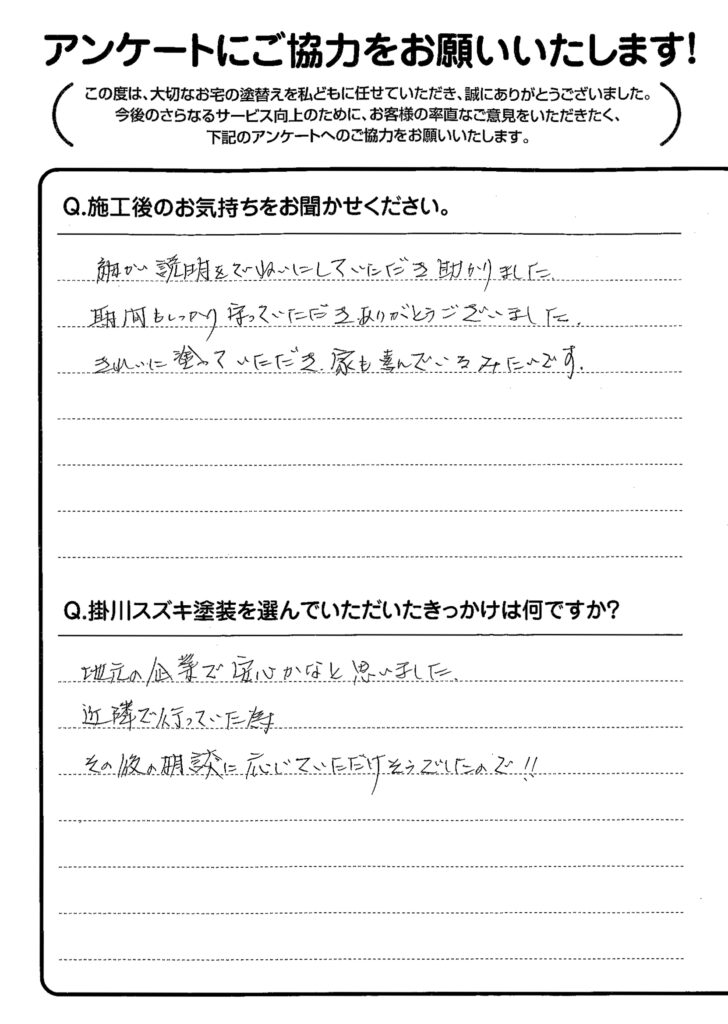 アンケートにご協力をお願いいたします!
この度は、大切なお宅の塗替えを私どもに任せていただき、誠にありがとうございました。
今後のさらなるサービス向上のために、お客様の率直なご意見をいただきたく、
下記のアンケートへのご協力をお願いいたします。
Q.施工後のお気持ちをお聞かせください。
細かい説明をていねいにしていただき助かりました。
期間もしっかり守っていただきありがとうございました。
きれいに塗っていただき、家も喜んでいるみたいです。
Q.掛川スズキ塗装を選んでいただいたきっかけは何ですか?
地元の企業で安心かなと思いました。
近隣で行っていた為
その後の相談に応じていただけそうでしたので!!